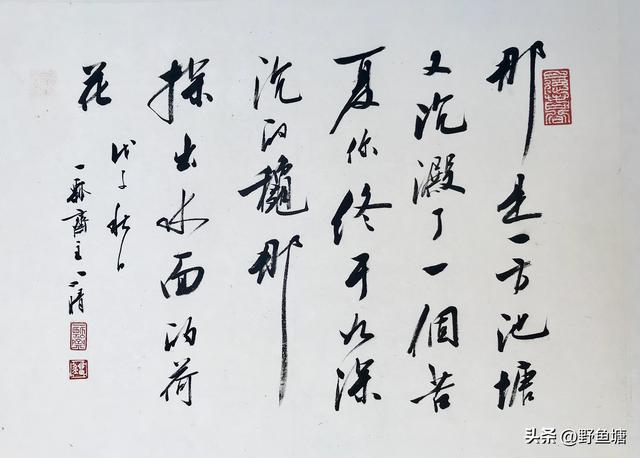 那是一方池塘
又沉澱了一個苦
夏你終于从深
沉的龝那
探出水面的荷
花
戊子秋日
一瓢齋主一清
头条 @野鱼塘